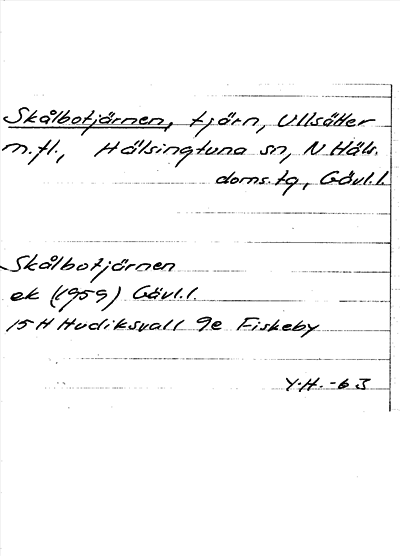 Skålbotjärnen, tjärn, Ullsäter
m.fl., Hälsingtuna sn, N Häls.
doms.tg, Gävl.l.
Skålbotjärnen
ek (1959) Gävl.l.
15 H Hudiksvall 9e Fiskeby
Y.H. -63